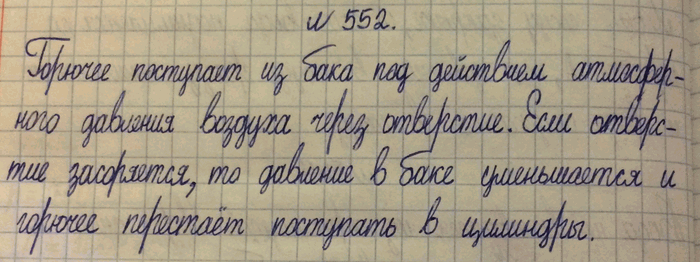 № 552.
Горючее поступает из бака под действием атмосфер-
ного давления воздуха через отверстие. Если отверс-
тие засоряется, то давление в баке уменьшается и
горючее перестаёт поступать в цилиндры.